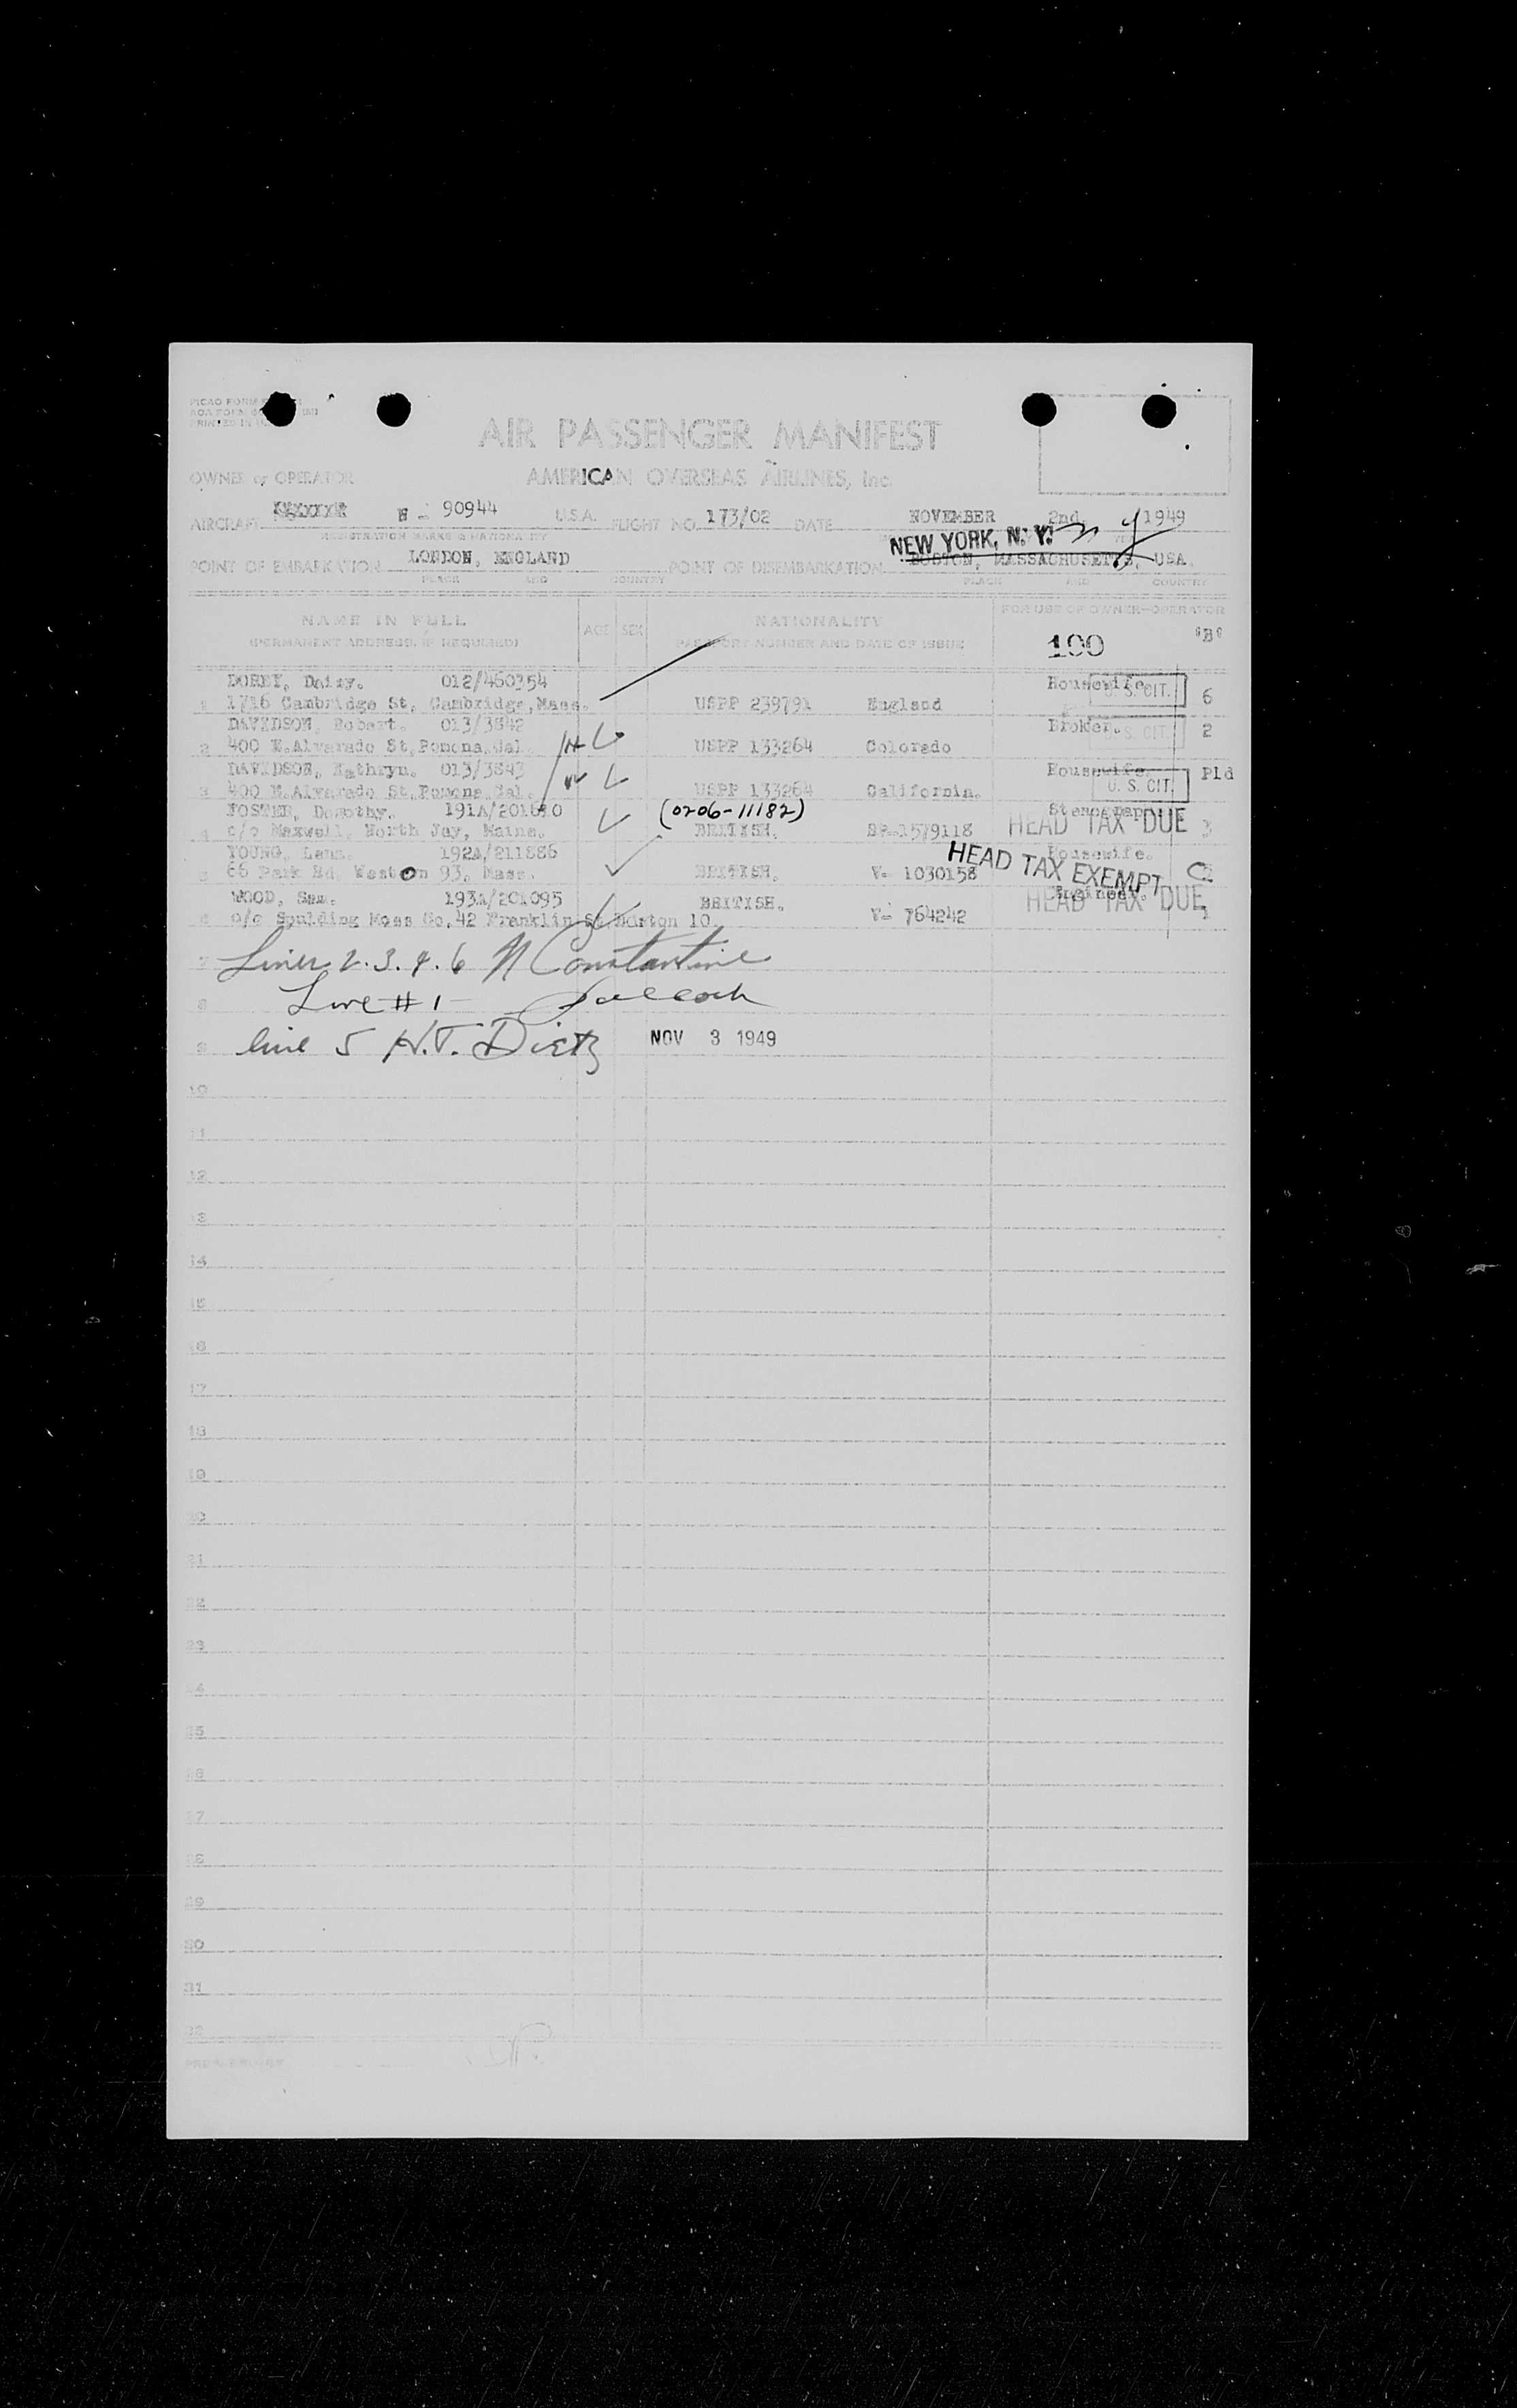 AIR PASSENGER MANIFEST
OWNER or OPERATOR AMERICAN OVERSEAS AIRLINES, Inc.
AIRCRAFT N - 90944 U.S.A. FLIGHT NO. 173/02 DATE NOVEMBER 2nd 1949
REGISTRATION MARKS & NATIONALITY
NEW YORK, N. Y.
POINT OF EMBARKATION LONDON, ENGLAND POINT OF DISEMBARKATION BOSTON, MASSACHUSETTS, USA.
PLACE AND COUNTRY PLACE AND COUNTRY
NAME IN FULL AGE SEX NATIONALITY FOR USE OF OWNER-OPERATOR
(PERMANENT ADDRESS, IF REQUIRED) PASSPORT NUMBER AND DATE OF ISSUE 100 "B"
DOREY, Daisy. 012/460354 Housewife U. S. CIT.
1 1716 Cambridge St, Cambridge, Mass. USPP 239791 England 6
DAVIDSON, Robert. 013/3842 Broker. U. S. CIT.
2 400 E.Alvarado St, Pomona, Cal. USPP 133264 Colorado 2
DAVIDSON, Kathryn. 013/3843 Housewife. Pld
3 400 E.Alvarado St, Pomona, Cal. USPP 133264 California. U. S. CIT.
FOSTER, Dorothy. (0206-11182)
4 c/o Maxwell, North Jay, Maine. BRITISH. 1579118 HEAD TAX DUE 3
YOUNG, 192A/211886 Housewife.
5 66 Park Rd, Weston 93, Mass. BRITISH. V- 1030158 HEAD TAX EXEMPT C.
WOOD, Sam. 193A/201095 BRITISH. Engineer. HEAD TAX DUE
6 c/o Spulding Moss Co, 42 Franklin St Boston 10. V- 764242 1
7 Lines 2.3.4.6 N Constantine
8 Line #1
9 line 5 H.T. Dietz NOV 3 1949
10
11
12
13
14
15
16
17
18
19
20
21
22
23
24
25
26
27
28
29
30
31
32